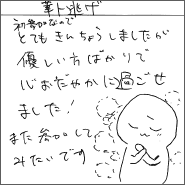 華ト逃げ
初参加なので
とてもきんちょうしましたが
優しい方ばかりで
心おだやかに過ごせ
ました!
また参加して
みたいです